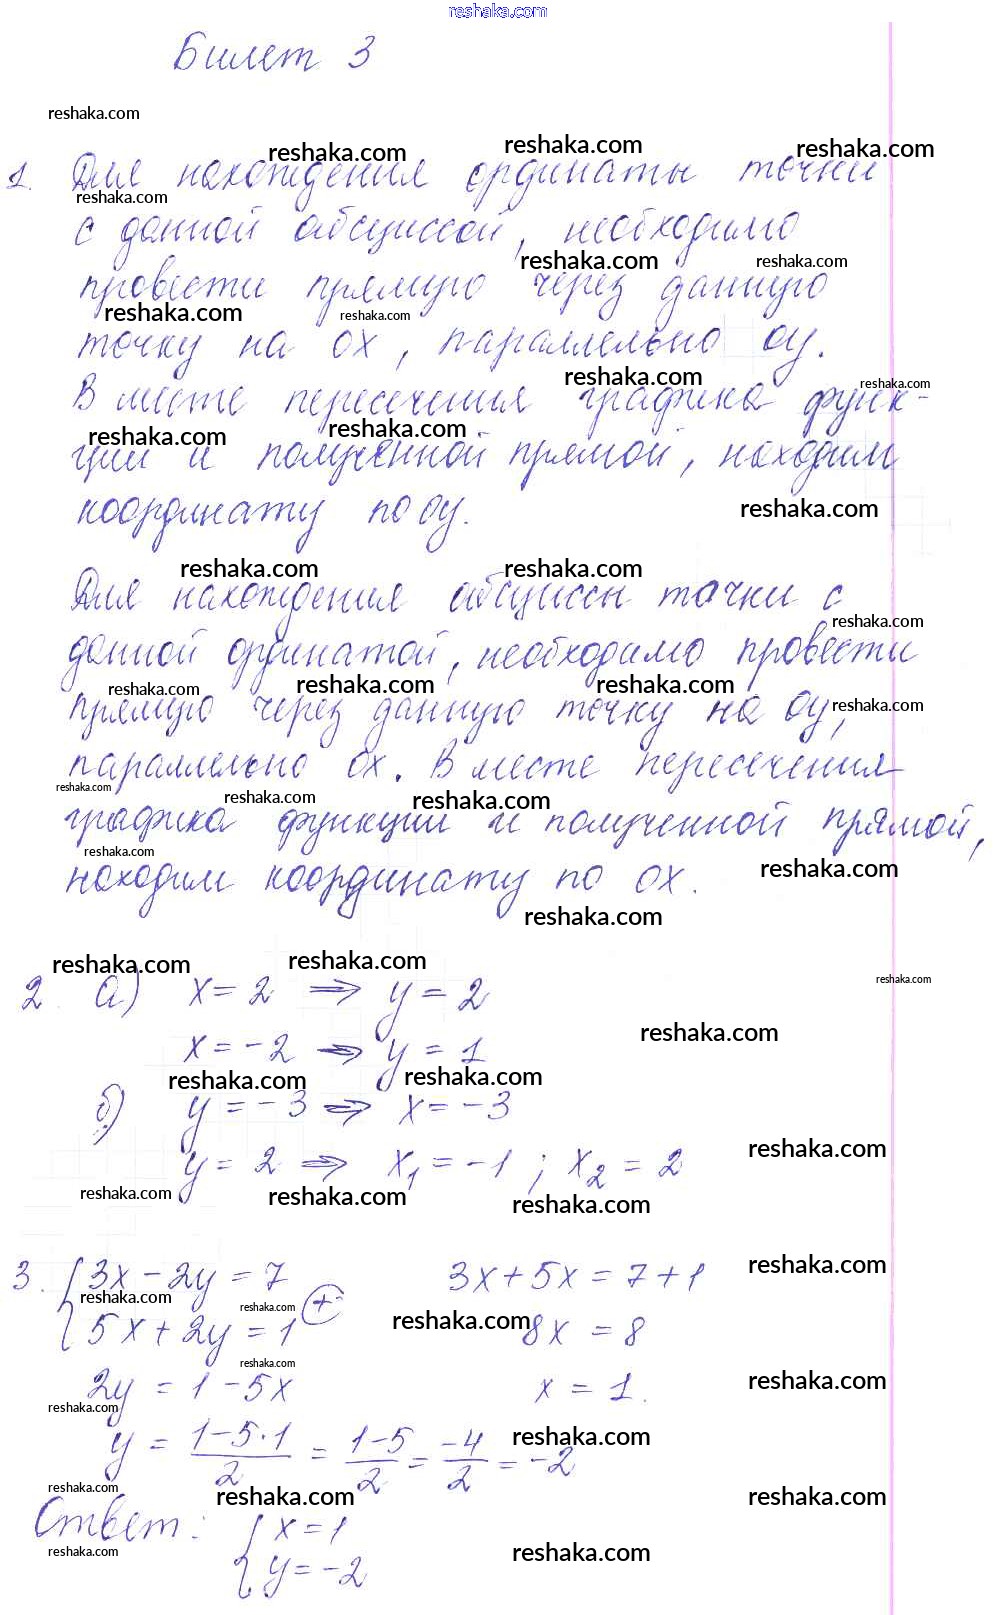 reshaka.com
Билет 3
1. Для нахождения ординаты точки
с данной абсциссой, необходимо
провести прямую через данную
точку на ОХ, параллельно ОУ.
В месте пересечения графика функ-
ции и полученной прямой, находим
координату по ОУ.
Для нахождения абсциссы точки с
данной ординатой, необходимо провести
прямую через данную точку на ОУ,
параллельно ОХ. В месте пересечения
графика функции и полученной прямой,
находим координату по ОХ.
2. а) x = 2 ⇒ y = 2
x = -2 ⇒ y = 1
б) y = -3 ⇒ x = -3
y = 2 ⇒ x₁ = -1 ; x₂ = 2
3. { 3x - 2y = 7 3x + 5x = 7 + 1
5x + 2y = 1 (+) 8x = 8
2y = 1 - 5x x = 1.
y = (1 - 5·1)/2 = (1 - 5)/2 = -4/2 = -2
Ответ: { x = 1
y = -2